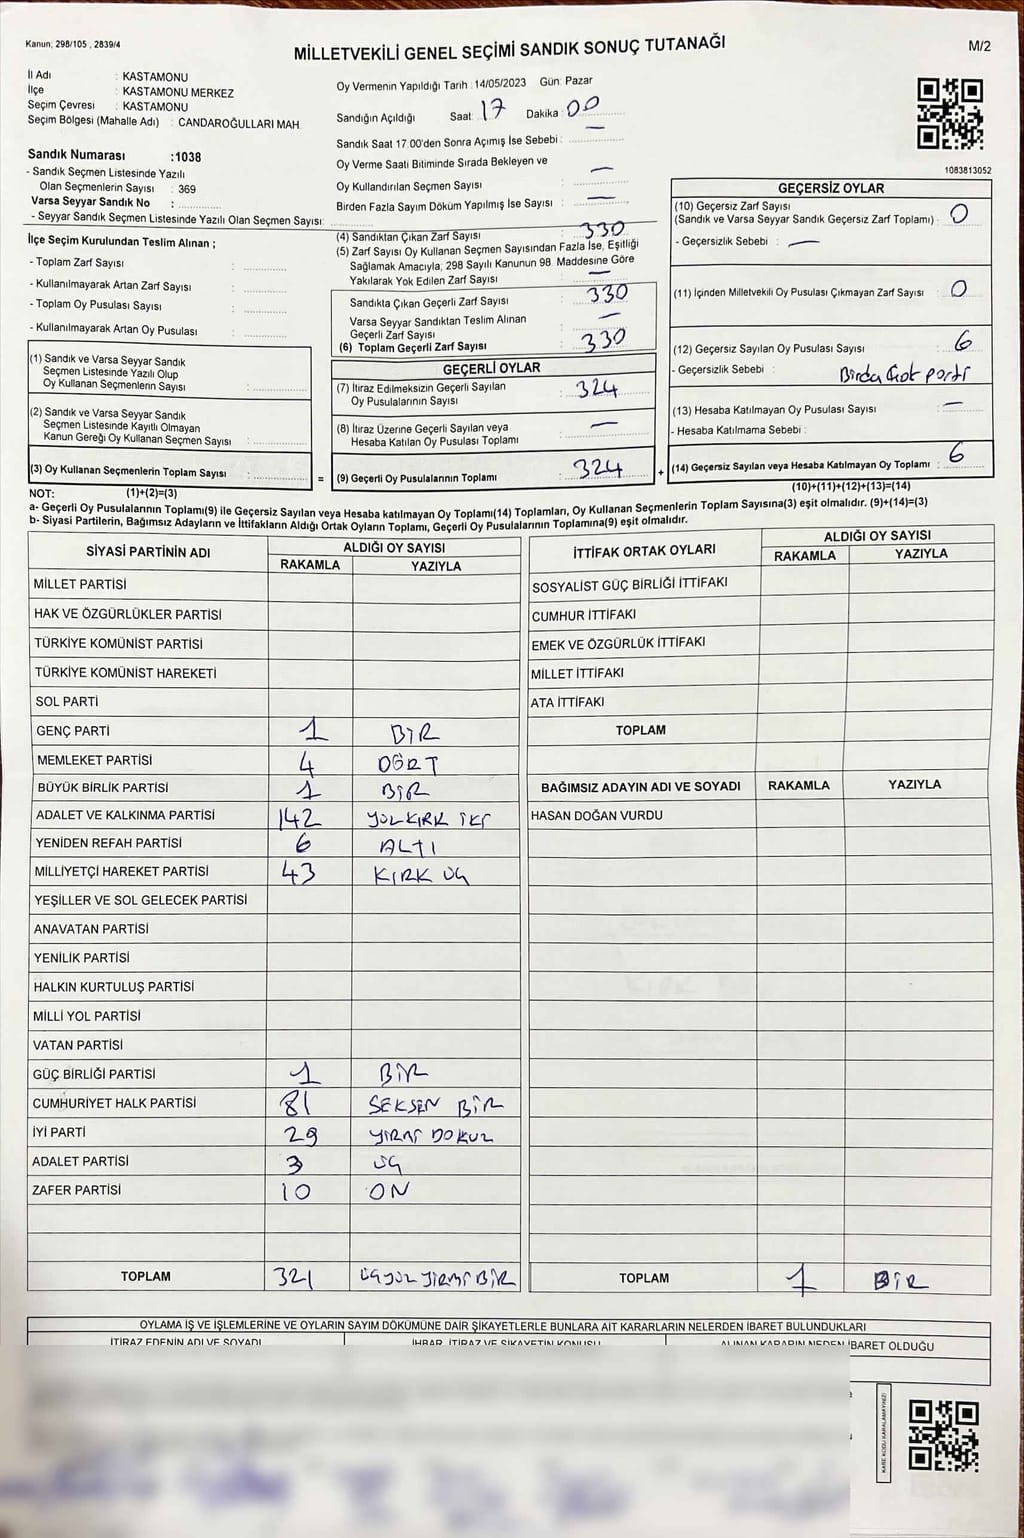 Kanun; 298/105 , 2839/4
MİLLETVEKİLİ GENEL SEÇİMİ SANDIK SONUÇ TUTANAĞI
M/2
İl Adı : KASTAMONU
İlçe : KASTAMONU MERKEZ
Seçim Çevresi : KASTAMONU
Seçim Bölgesi (Mahalle Adı) : CANDAROĞULLARI MAH.
Sandık Numarası :1038
- Sandık Seçmen Listesinde Yazılı
Olan Seçmenlerin Sayısı : 369
Varsa Seyyar Sandık No :
- Seyyar Sandık Seçmen Listesinde Yazılı Olan Seçmen Sayısı:
Oy Vermenin Yapıldığı Tarih : 14/05/2023 Gün: Pazar
Sandığın Açıldığı Saat: 17 Dakika: 00
Sandık Saat 17.00'den Sonra Açımış İse Sebebi : —
Oy Verme Saati Bitiminde Sırada Bekleyen ve
Oy Kullandırılan Seçmen Sayısı : —
Birden Fazla Sayım Döküm Yapılmış İse Sayısı : —
1083813052
İlçe Seçim Kurulundan Teslim Alınan ;
- Toplam Zarf Sayısı :
- Kullanılmayarak Artan Zarf Sayısı :
- Toplam Oy Pusulası Sayısı :
- Kullanılmayarak Artan Oy Pusulası :
(1) Sandık ve Varsa Seyyar Sandık
Seçmen Listesinde Yazılı Olup
Oy Kullanan Seçmenlerin Sayısı :
(2) Sandık ve Varsa Seyyar Sandık
Seçmen Listesinde Kayıtlı Olmayan
Kanun Gereği Oy Kullanan Seçmen Sayısı :
(3) Oy Kullanan Seçmenlerin Toplam Sayısı : =
(4) Sandıktan Çıkan Zarf Sayısı : 330
(5) Zarf Sayısı Oy Kullanan Seçmen Sayısından Fazla İse, Eşitliği
Sağlamak Amacıyla, 298 Sayılı Kanunun 98. Maddesine Göre
Yakılarak Yok Edilen Zarf Sayısı : —
Sandıkta Çıkan Geçerli Zarf Sayısı : 330
Varsa Seyyar Sandıktan Teslim Alınan
Geçerli Zarf Sayısı : —
(6) Toplam Geçerli Zarf Sayısı : 330
GEÇERLİ OYLAR
(7) İtiraz Edilmeksizin Geçerli Sayılan
Oy Pusulalarının Sayısı : 324
(8) İtiraz Üzerine Geçerli Sayılan veya
Hesaba Katılan Oy Pusulası Toplamı : —
(9) Geçerli Oy Pusulalarının Toplamı : 324 +
GEÇERSİZ OYLAR
(10) Geçersiz Zarf Sayısı
(Sandık ve Varsa Seyyar Sandık Geçersiz Zarf Toplamı) : 0
- Geçersizlik Sebebi : —
(11) İçinden Milletvekili Oy Pusulası Çıkmayan Zarf Sayısı : 0
(12) Geçersiz Sayılan Oy Pusulası Sayısı : 6
- Geçersizlik Sebebi : Birden Çok parti
(13) Hesaba Katılmayan Oy Pusulası Sayısı : —
- Hesaba Katılmama Sebebi :
(14) Geçersiz Sayılan veya Hesaba Katılmayan Oy Toplamı : 6
NOT: (1)+(2)=(3) (10)+(11)+(12)+(13)=(14)
a- Geçerli Oy Pusulalarının Toplamı(9) ile Geçersiz Sayılan veya Hesaba katılmayan Oy Toplamı(14) Toplamları, Oy Kullanan Seçmenlerin Toplam Sayısına(3) eşit olmalıdır. (9)+(14)=(3)
b- Siyasi Partilerin, Bağımsız Adayların ve İttifakların Aldığı Ortak Oyların Toplamı, Geçerli Oy Pusulalarının Toplamına(9) eşit olmalıdır.
SİYASİ PARTİNİN ADI ALDIĞI OY SAYISI
RAKAMLA YAZIYLA
MİLLET PARTİSİ
HAK VE ÖZGÜRLÜKLER PARTİSİ
TÜRKİYE KOMÜNİST PARTİSİ
TÜRKİYE KOMÜNİST HAREKETİ
SOL PARTİ
GENÇ PARTİ 1 BİR
MEMLEKET PARTİSİ 4 DÖRT
BÜYÜK BİRLİK PARTİSİ 1 BİR
ADALET VE KALKINMA PARTİSİ 142 YÜZ KIRK İKİ
YENİDEN REFAH PARTİSİ 6 ALTI
MİLLİYETÇİ HAREKET PARTİSİ 43 KIRK ÜÇ
YEŞİLLER VE SOL GELECEK PARTİSİ
ANAVATAN PARTİSİ
YENİLİK PARTİSİ
HALKIN KURTULUŞ PARTİSİ
MİLLİ YOL PARTİSİ
VATAN PARTİSİ
GÜÇ BİRLİĞİ PARTİSİ 1 BİR
CUMHURİYET HALK PARTİSİ 81 SEKSEN BİR
İYİ PARTİ 29 YİRMİ DOKUZ
ADALET PARTİSİ 3 ÜÇ
ZAFER PARTİSİ 10 ON
TOPLAM 321 ÜÇ YÜZ YİRMİ BİR
İTTİFAK ORTAK OYLARI ALDIĞI OY SAYISI
RAKAMLA YAZIYLA
SOSYALİST GÜÇ BİRLİĞİ İTTİFAKI
CUMHUR İTTİFAKI
EMEK VE ÖZGÜRLÜK İTTİFAKI
MİLLET İTTİFAKI
ATA İTTİFAKI
TOPLAM
BAĞIMSIZ ADAYIN ADI VE SOYADI RAKAMLA YAZIYLA
HASAN DOĞAN VURDU
TOPLAM 1 BİR
OYLAMA İŞ VE İŞLEMLERİNE VE OYLARIN SAYIM DÖKÜMÜNE DAİR ŞİKAYETLERLE BUNLARA AİT KARARLARIN NELERDEN İBARET BULUNDUKLARI
İTİRAZ EDENİN ADI VE SOYADI İHBAR, İTİRAZ VE ŞİKAYETİN KONUSU ALINAN KARARIN NEDEN İBARET OLDUĞU